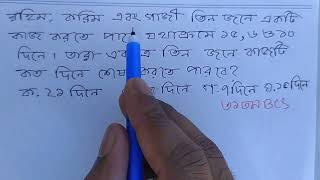 রহিম, করিম এবং গাজী তিন জনে একটি
কাজ করতে পারে যথাক্রমে ১৫, ৬ ও ১০
দিনে। তারা একত্রে তিন জনে কাজটি
কত দিনে শেষ করতে পারবে?
ক. ২১ দিনে দিনে গ. ৭ দিনে ঘ. দিনে
BCS